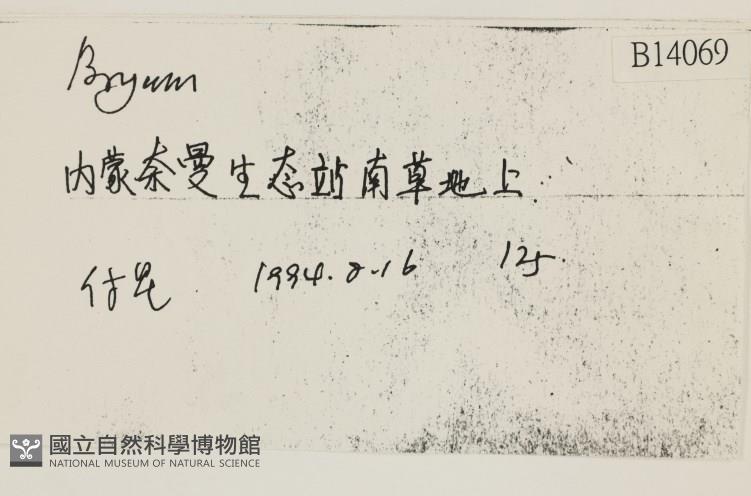 B14069
Bryum
内蒙奈曼生态站南草地上.
付星 1994.8.16 125.
國立自然科學博物館
NATIONAL MUSEUM OF NATURAL SCIENCE